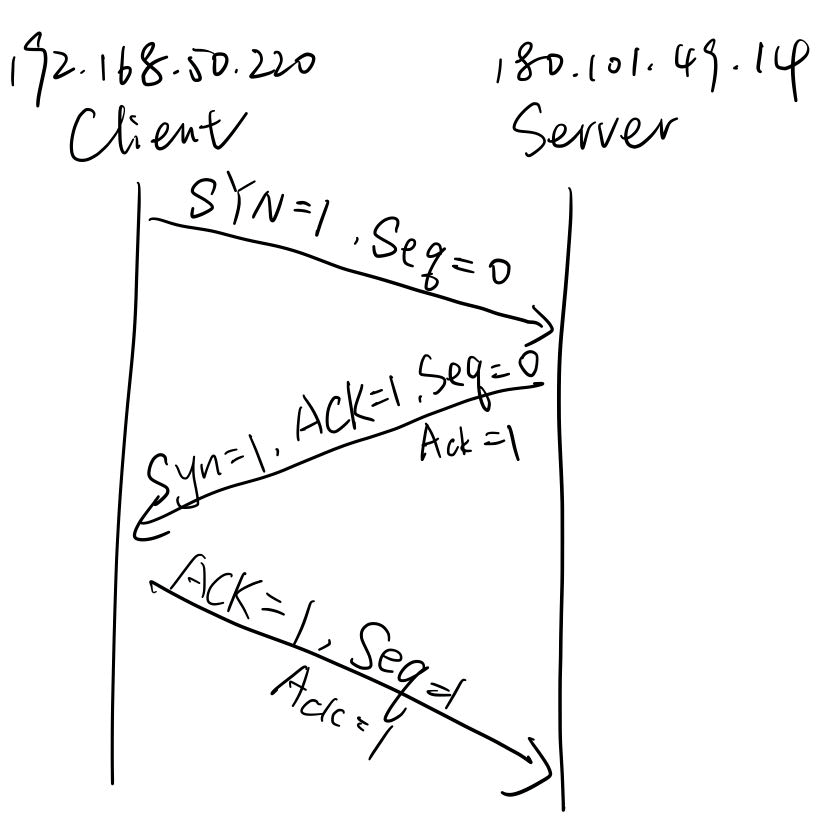 192.168.50.220
180.101.49.14
Client
Server
SYN=1, Seq=0
Syn=1, ACK=1, Seq=0
Ack=1
ACK=1, Seq=1
Ack=1